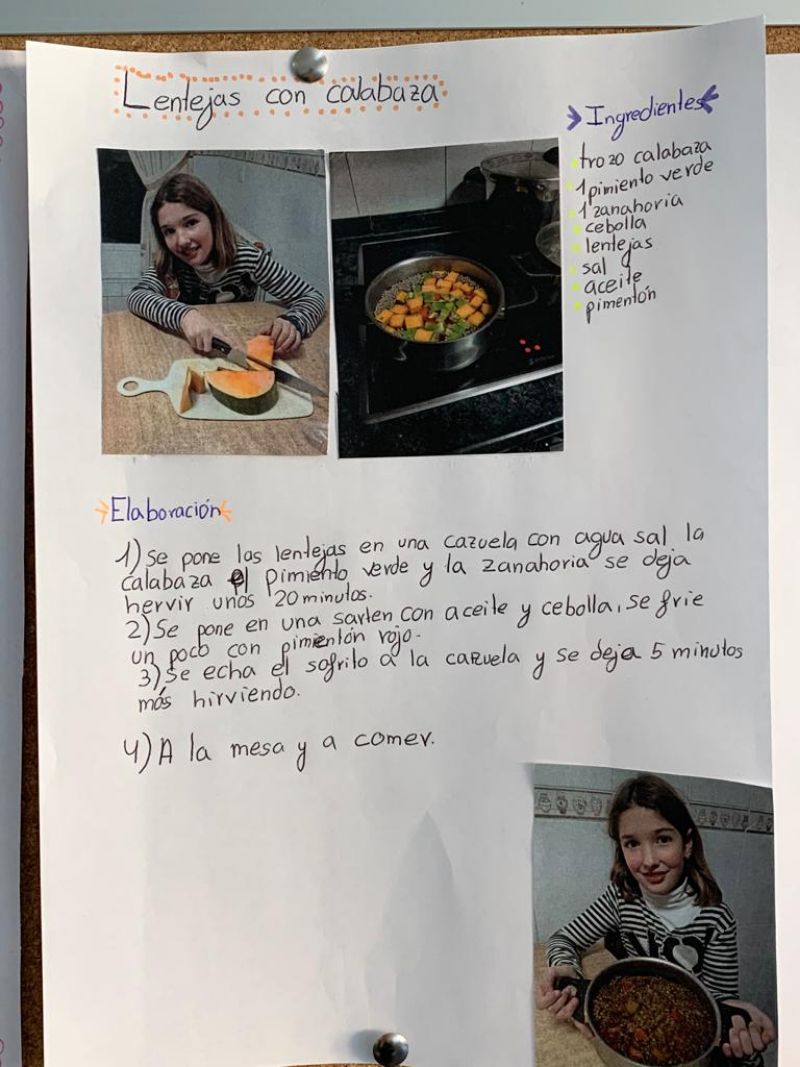 Lentejas con calabaza
Ingredientes
trozo calabaza
1 pimiento verde
1 zanahoria
cebolla
lentejas
sal
aceite
pimentón
Elaboración
1) Se pone las lentejas en una cazuela con agua sal la
calabaza el pimiento verde y la zanahoria se deja
hervir unos 20 minutos.
2) Se pone en una sarten con aceite y cebolla, se frie
un poco con pimentón rojo.
3) Se echa el sofrito a la cazuela y se deja 5 minutos
más hirviendo.
4) A la mesa y a comer.